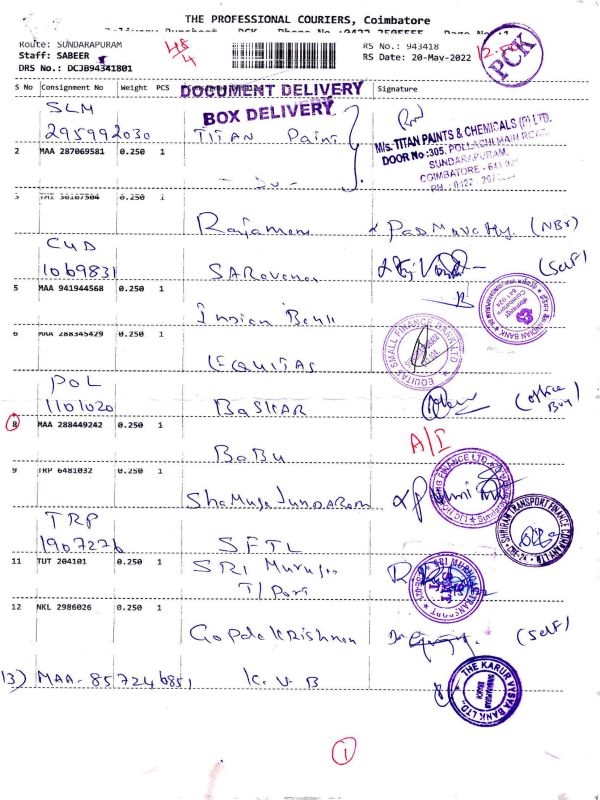 THE PROFESSIONAL COURIERS, Coimbatore
Route: SUNDARAPURAM
Staff: SABEER
DRS No.: DCJB94341801
48/4
RS No.: 943418
RS Date: 20-May-2022
PCK
S No Consignment No Weight PCS Signature
DOCUMENT DELIVERY
BOX DELIVERY
SLM
295992030 TITAN Paint
M/s. TITAN PAINTS & CHEMICALS (P) LTD.
DOOR No :305, POLLACHI MAIN ROAD,
SUNDARAPURAM,
COIMBATORE -
2 MAA 287069581 0.250 1
- Do -
3 0.250 1
Rajamani Padmavathy (NBr)
CUD
1069831 SARavanan (Self)
5 MAA 941944568 0.250 1
Indian Bank
INDIAN BANK
6 MAA 288345429 0.250 1
EQUITAS
EQUITAS SMALL FINANCE BANK LTD
POL
1101020 BASKAR (office Boy)
8 MAA 288449242 0.250 1
BaBu A/I
9 TRP 6481032 0.250 1
LIC HOUSING FINANCE LTD
TRP
1907226 SFTL
SHRIRAM TRANSPORT FINANCE COMPANY LTD
11 TUT 204101 0.250 1
SRI Murugan
T/Port
SRI MURUGAN TRANSPORT
12 NKL 2986026 0.250 1
Gopalakrishnan (Self)
13) MAA- 857246851 K. V B
THE KARUR VYSYA BANK LTD.
SUNDARAPURAM
BRANCH
1